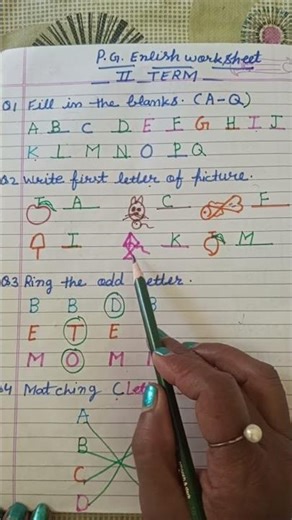 P.G. Enlish worksheet
II TERM
Q1 Fill in the blanks. (A-Q)
A B C D E F G H I J
K L M N O P Q
Q2 Write first letter of picture.
A C F
I K M
Q3 Ring the odd letter.
B B D B
E T E
M O M
Q4 Matching (Let
A
B
C
D